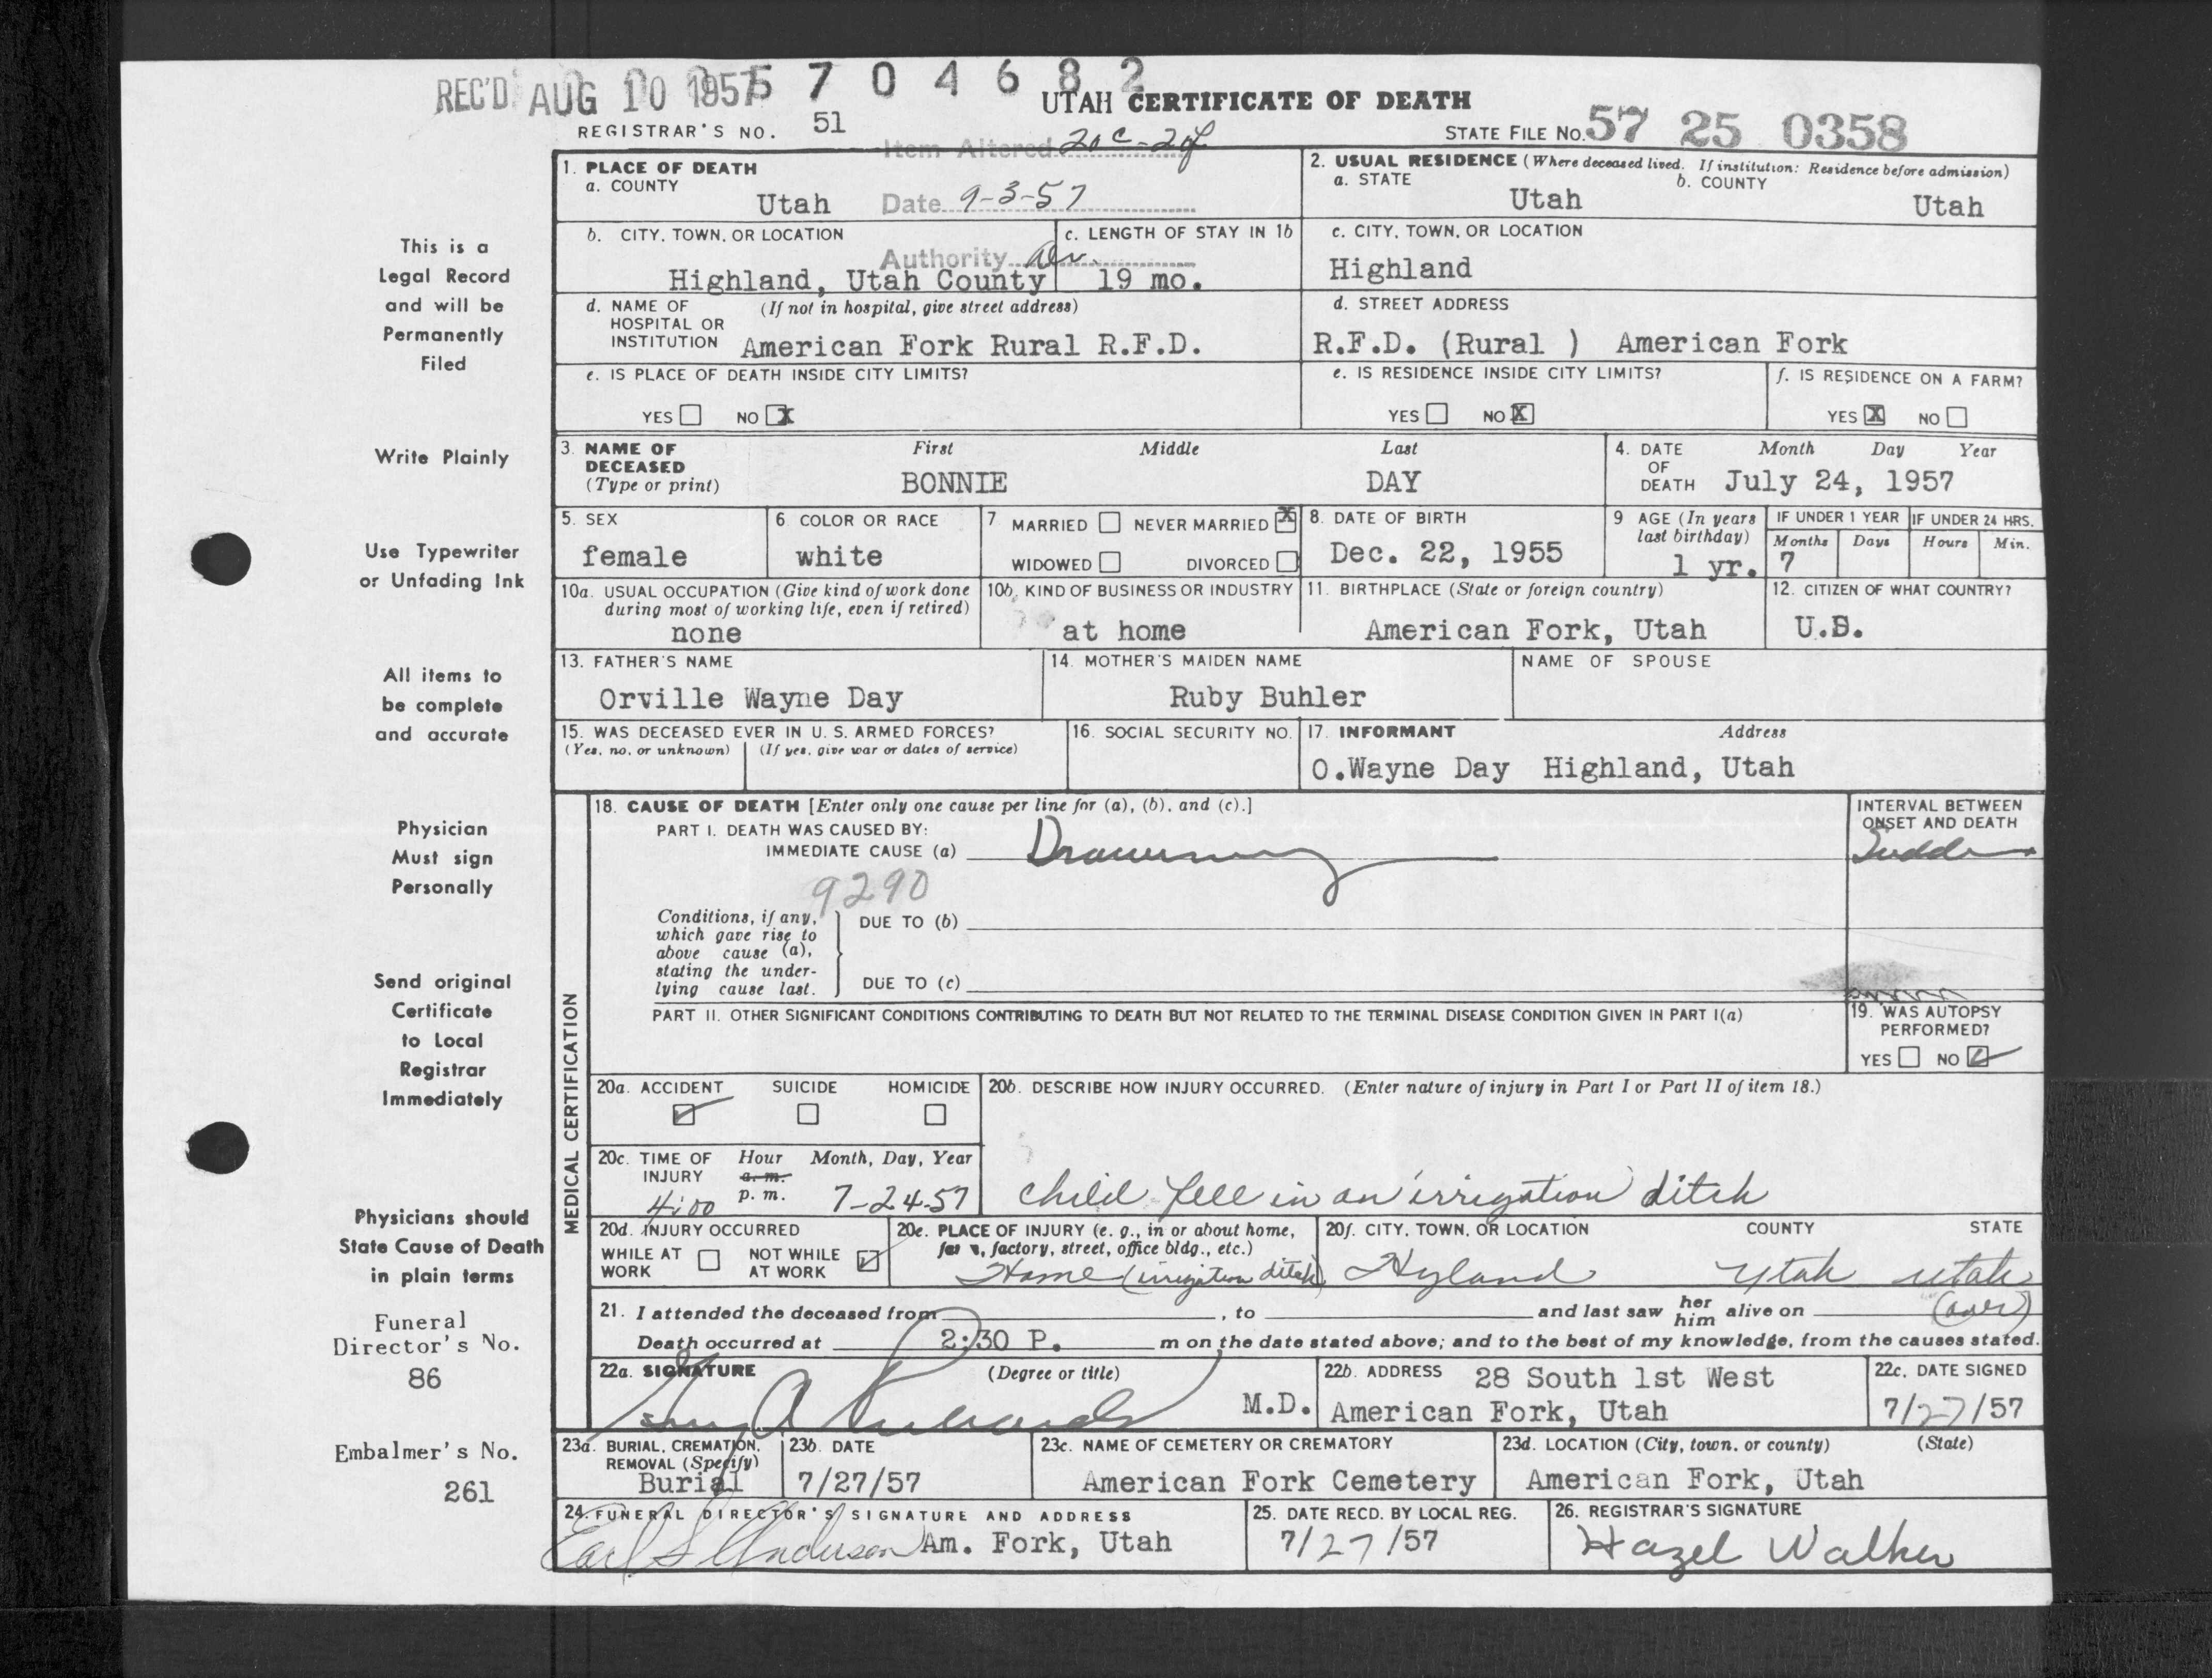 REC'D AUG 10 1957 5 7 0 4 6 8 2
UTAH CERTIFICATE OF DEATH
REGISTRAR'S NO. 51
STATE FILE NO. 57 25 0358
Item Altered 20c-20f
Date 9-3-57
Authority
1. PLACE OF DEATH
a. COUNTY
Utah
2. USUAL RESIDENCE (Where deceased lived. If institution: Residence before admission)
a. STATE
Utah
b. COUNTY
Utah
b. CITY, TOWN, OR LOCATION
Highland, Utah County
c. LENGTH OF STAY IN 1b
19 mo.
c. CITY, TOWN, OR LOCATION
Highland
d. NAME OF HOSPITAL OR INSTITUTION
(If not in hospital, give street address)
American Fork Rural R.F.D.
d. STREET ADDRESS
R.F.D. (Rural ) American Fork
e. IS PLACE OF DEATH INSIDE CITY LIMITS?
YES NO X
e. IS RESIDENCE INSIDE CITY LIMITS?
YES NO X
f. IS RESIDENCE ON A FARM?
YES X NO
3. NAME OF DECEASED (Type or print)
First Middle Last
BONNIE DAY
4. DATE OF DEATH
Month Day Year
July 24, 1957
5. SEX
female
6 COLOR OR RACE
white
7 MARRIED NEVER MARRIED X
WIDOWED DIVORCED
8. DATE OF BIRTH
Dec. 22, 1955
9 AGE (In years last birthday)
1 yr.
IF UNDER 1 YEAR
Months Days
7
IF UNDER 24 HRS.
Hours Min.
10a. USUAL OCCUPATION (Give kind of work done during most of working life, even if retired)
none
10b. KIND OF BUSINESS OR INDUSTRY
at home
11. BIRTHPLACE (State or foreign country)
American Fork, Utah
12. CITIZEN OF WHAT COUNTRY?
U.S.
13. FATHER'S NAME
Orville Wayne Day
14. MOTHER'S MAIDEN NAME
Ruby Buhler
NAME OF SPOUSE
15. WAS DECEASED EVER IN U. S. ARMED FORCES?
(Yes, no, or unknown) (If yes, give war or dates of service)
16. SOCIAL SECURITY NO.
17. INFORMANT Address
O.Wayne Day Highland, Utah
MEDICAL CERTIFICATION
18. CAUSE OF DEATH [Enter only one cause per line for (a), (b), and (c).]
PART I. DEATH WAS CAUSED BY:
IMMEDIATE CAUSE (a) Drowning
INTERVAL BETWEEN ONSET AND DEATH
Sudden
9290
Conditions, if any, which gave rise to above cause (a), stating the under-lying cause last.
DUE TO (b)
DUE TO (c)
PART II. OTHER SIGNIFICANT CONDITIONS CONTRIBUTING TO DEATH BUT NOT RELATED TO THE TERMINAL DISEASE CONDITION GIVEN IN PART I(a)
19. WAS AUTOPSY PERFORMED?
YES NO
20a. ACCIDENT SUICIDE HOMICIDE
20b. DESCRIBE HOW INJURY OCCURRED. (Enter nature of injury in Part I or Part II of item 18.)
child fell in an irrigation ditch
20c. TIME OF INJURY
Hour Month, Day, Year
a. m.
p. m.
4:00 7-24-57
20d. INJURY OCCURRED
WHILE AT WORK NOT WHILE AT WORK
20e. PLACE OF INJURY (e. g., in or about home, farm, factory, street, office bldg., etc.)
Home (irrigation ditch)
20f. CITY, TOWN, OR LOCATION COUNTY STATE
Hyland Utah Utah
(over)
21. I attended the deceased from , to and last saw her him alive on
Death occurred at 2:30 P. m on the date stated above; and to the best of my knowledge, from the causes stated.
22a. SIGNATURE (Degree or title)
M.D.
22b. ADDRESS 28 South 1st West
American Fork, Utah
22c. DATE SIGNED
7/27/57
23a. BURIAL, CREMATION, REMOVAL (Specify)
Burial
23b. DATE
7/27/57
23c. NAME OF CEMETERY OR CREMATORY
American Fork Cemetery
23d. LOCATION (City, town, or county) (State)
American Fork, Utah
24. FUNERAL DIRECTOR'S SIGNATURE AND ADDRESS
Earl S Anderson Am. Fork, Utah
25. DATE RECD. BY LOCAL REG.
7/27/57
26. REGISTRAR'S SIGNATURE
Hazel Walker
This is a
Legal Record
and will be
Permanently
Filed
Write Plainly
Use Typewriter
or Unfading Ink
All items to
be complete
and accurate
Physician
Must sign
Personally
Send original
Certificate
to Local
Registrar
Immediately
Physicians should
State Cause of Death
in plain terms
Funeral
Director's No.
86
Embalmer's No.
261